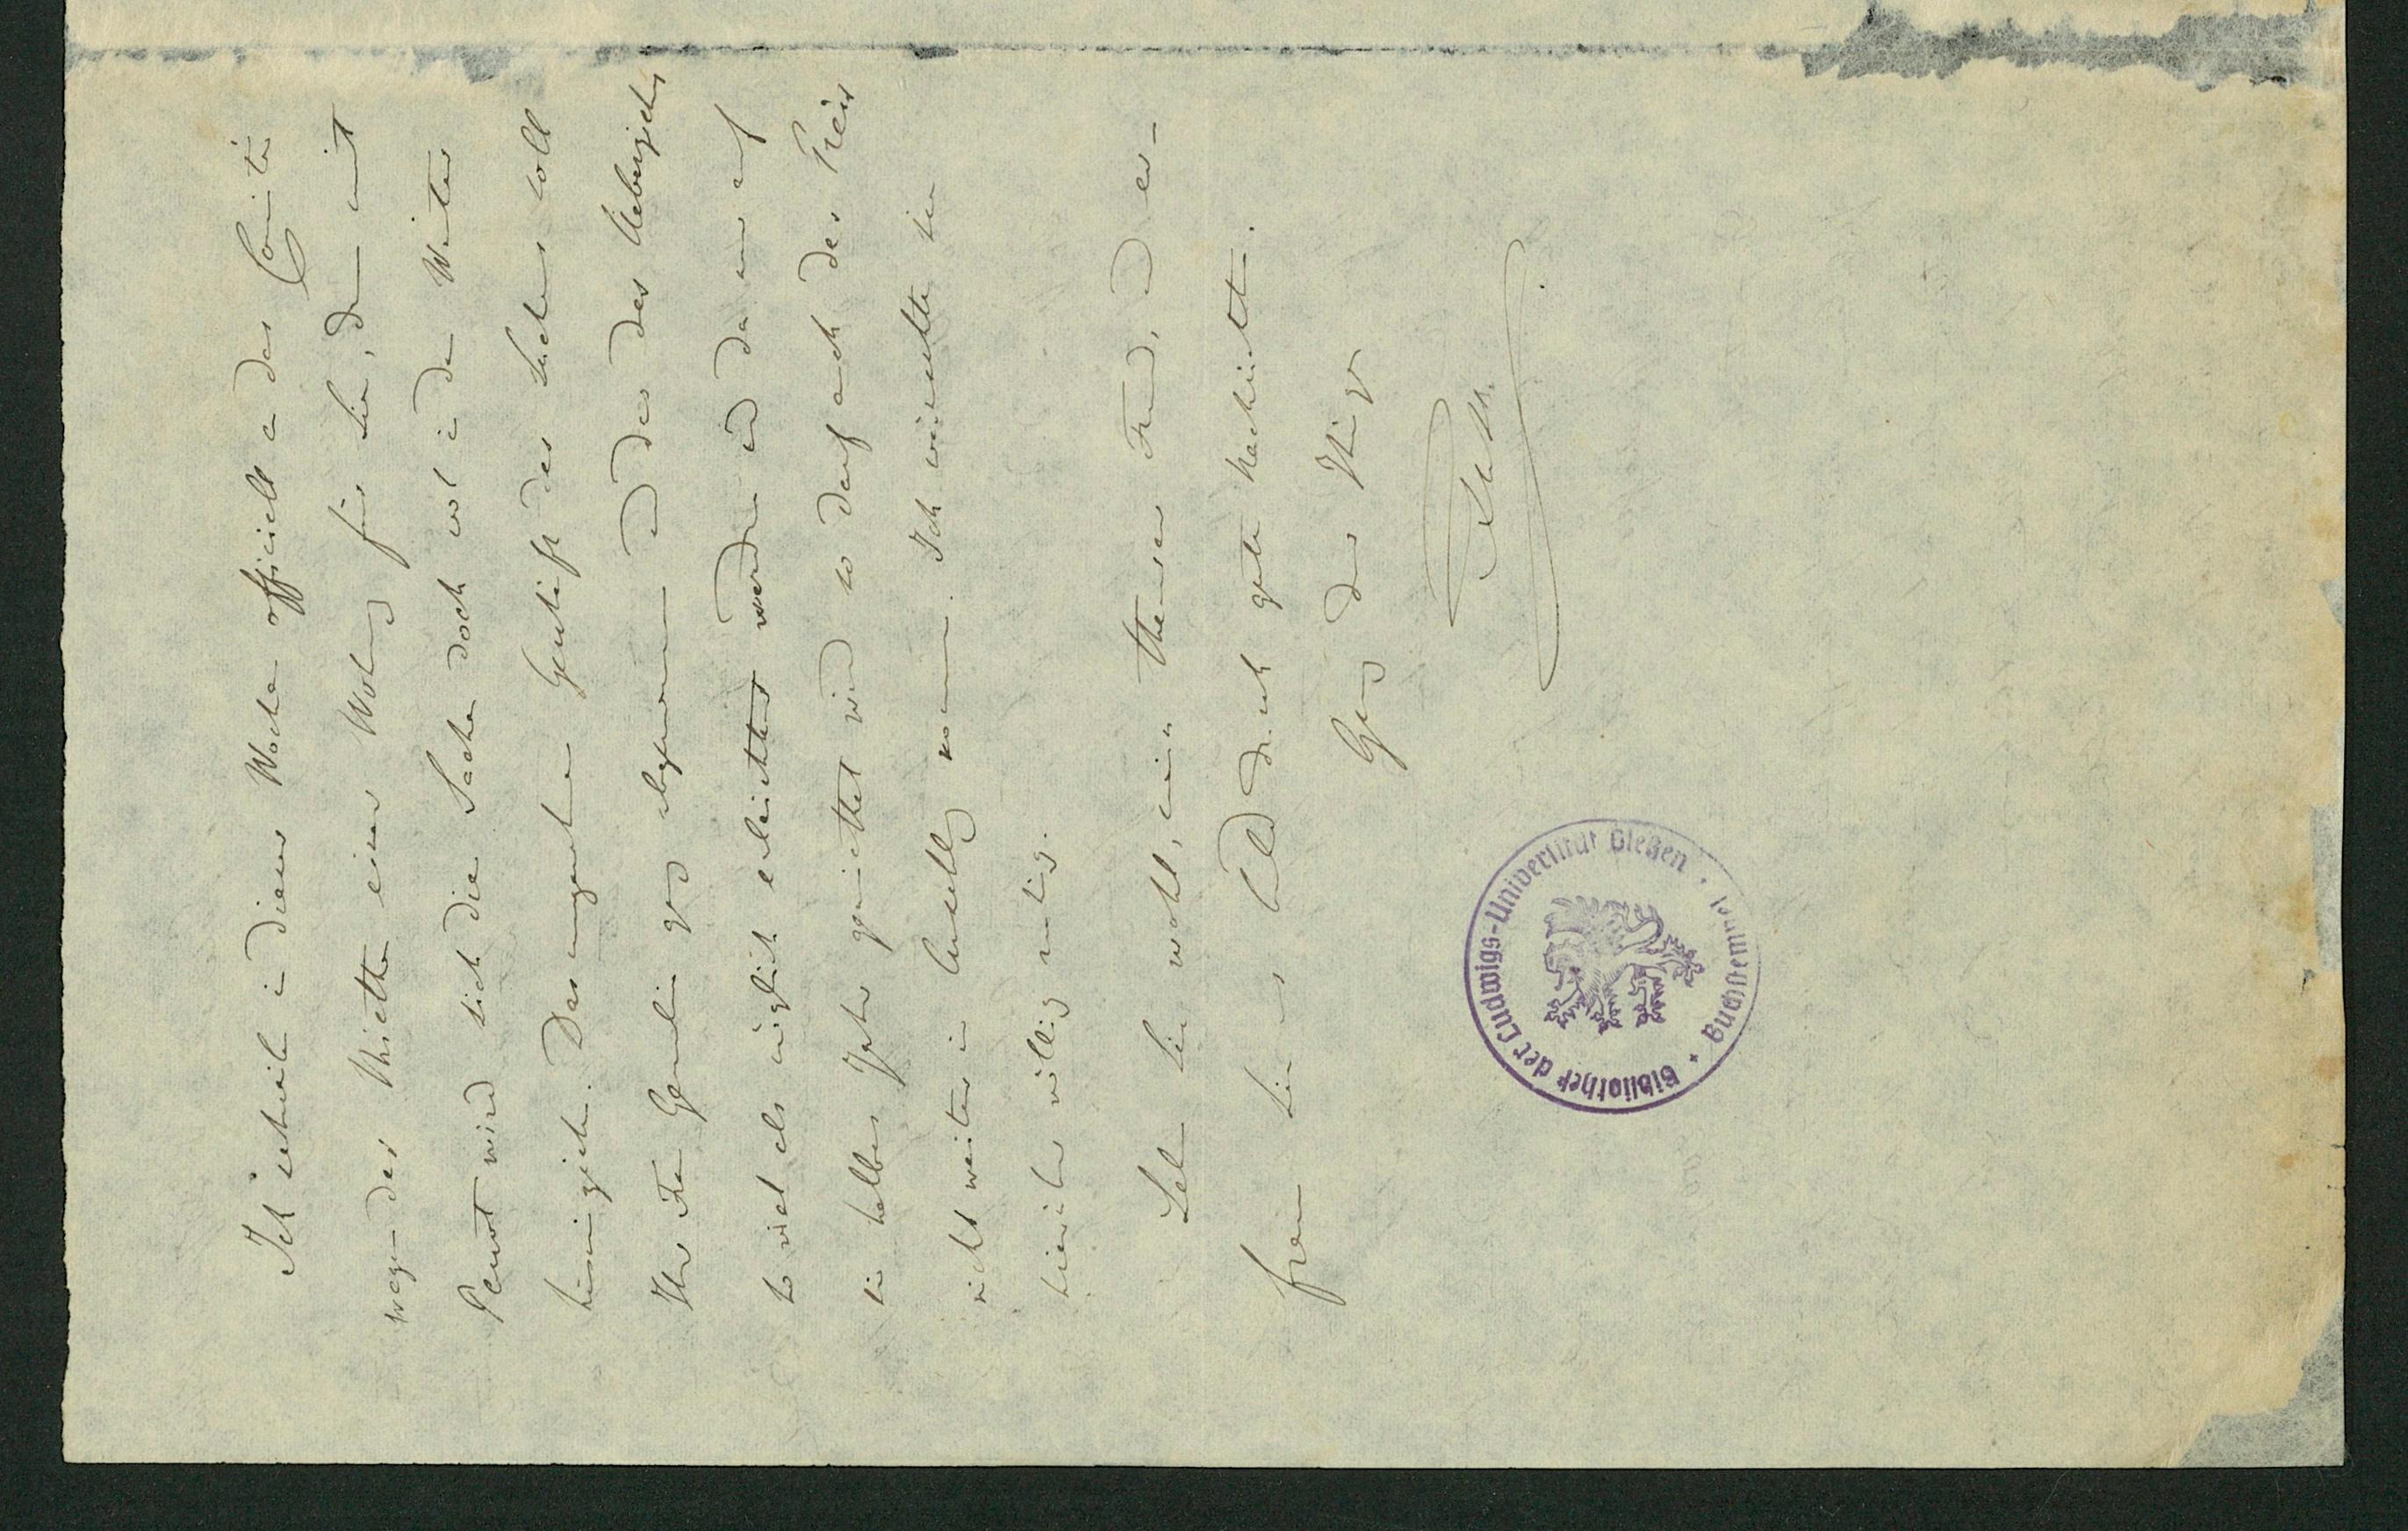 Ich schreibe in dieser Woche officiell an das Comité
wegen der Miethe einer Wohng für Sie, denn mit
Pernot wird sich die Sache doch wol in den Winter
hineinziehen. Das ungenehme Geschäft des Suchens soll
Ihrer Frau Gemalin ganz abgenommen und das des Umziehens
so viel als möglich erleichtert werden und da nur auf
ein halbes Jahr gemiethet wird so darf auch der Preis
nicht weiter in Anschlag kommen. Ich wünschte Sie
hierüber völlig ruhig.
Leben Sie wohl, mein theurer Freund, und er-
freuen Sie uns bald durch gute Nachricht.
Ganz der Ihrige
Bibliothek der Ludwigs-Universität Gießen · Buchstempel ·